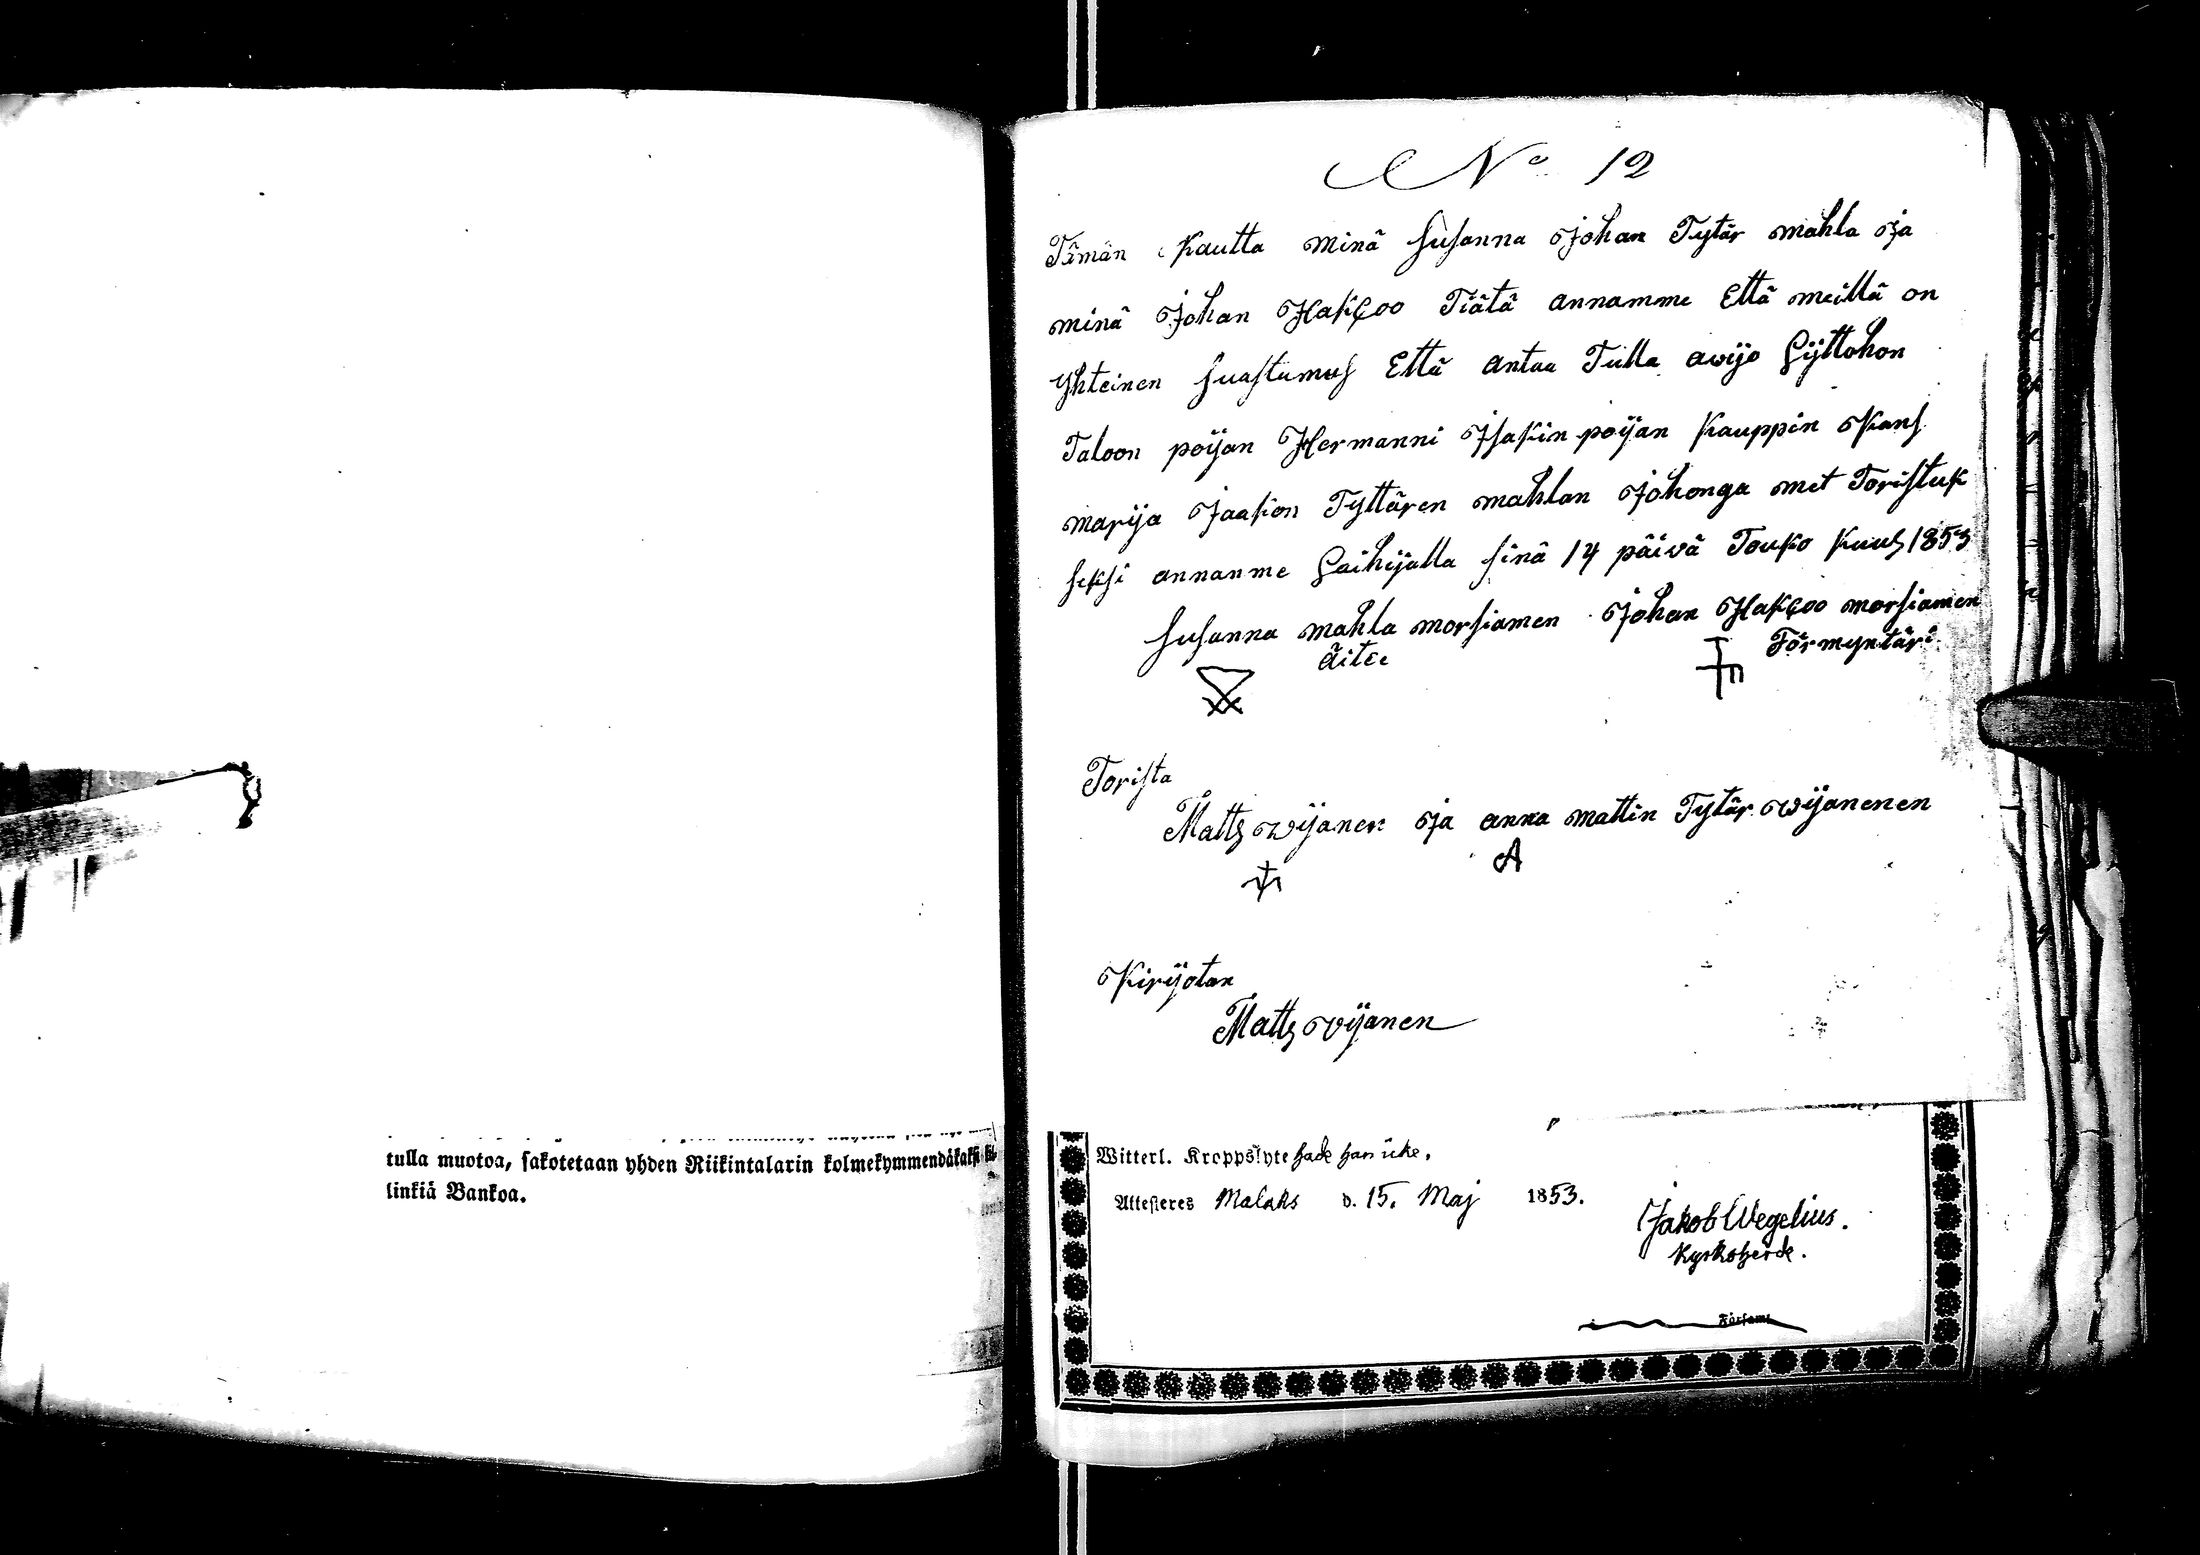 tulla muotoa, sakotetaan yhden Riikintalarin kolmekymmendäkaksi kil-
linkiä Bankoa.
No 12
Tämän kautta minä Susanna Johan Tytär mahla ja
minä Johan Hakçoo Tiätä annamme Että meillä on
Yhteinen suastumus Että antaa Tulla awijo Lijttohon
Taloon poijan Hermanni Isakin poijan Kauppin Kans
marija Jaakon Tyttären mahlan Johonga met Toristuk
seksi annanme Laihijalla sinä 14 päivä Touko kuus 1853
Susanna mahla morsiamen Johan Hakçoo morsiamen
äitee Förmyntäri
Torista
Matts wijanen ja anna mattin Tytär wijanenen
A
Kirijotan
Matts wijanen
Witterl. Kroppslyte hade han icke.
Attesteres Malaks d. 15. Maj 1853.
Jakob Wegelius.
Kyrkoherde.
Församl